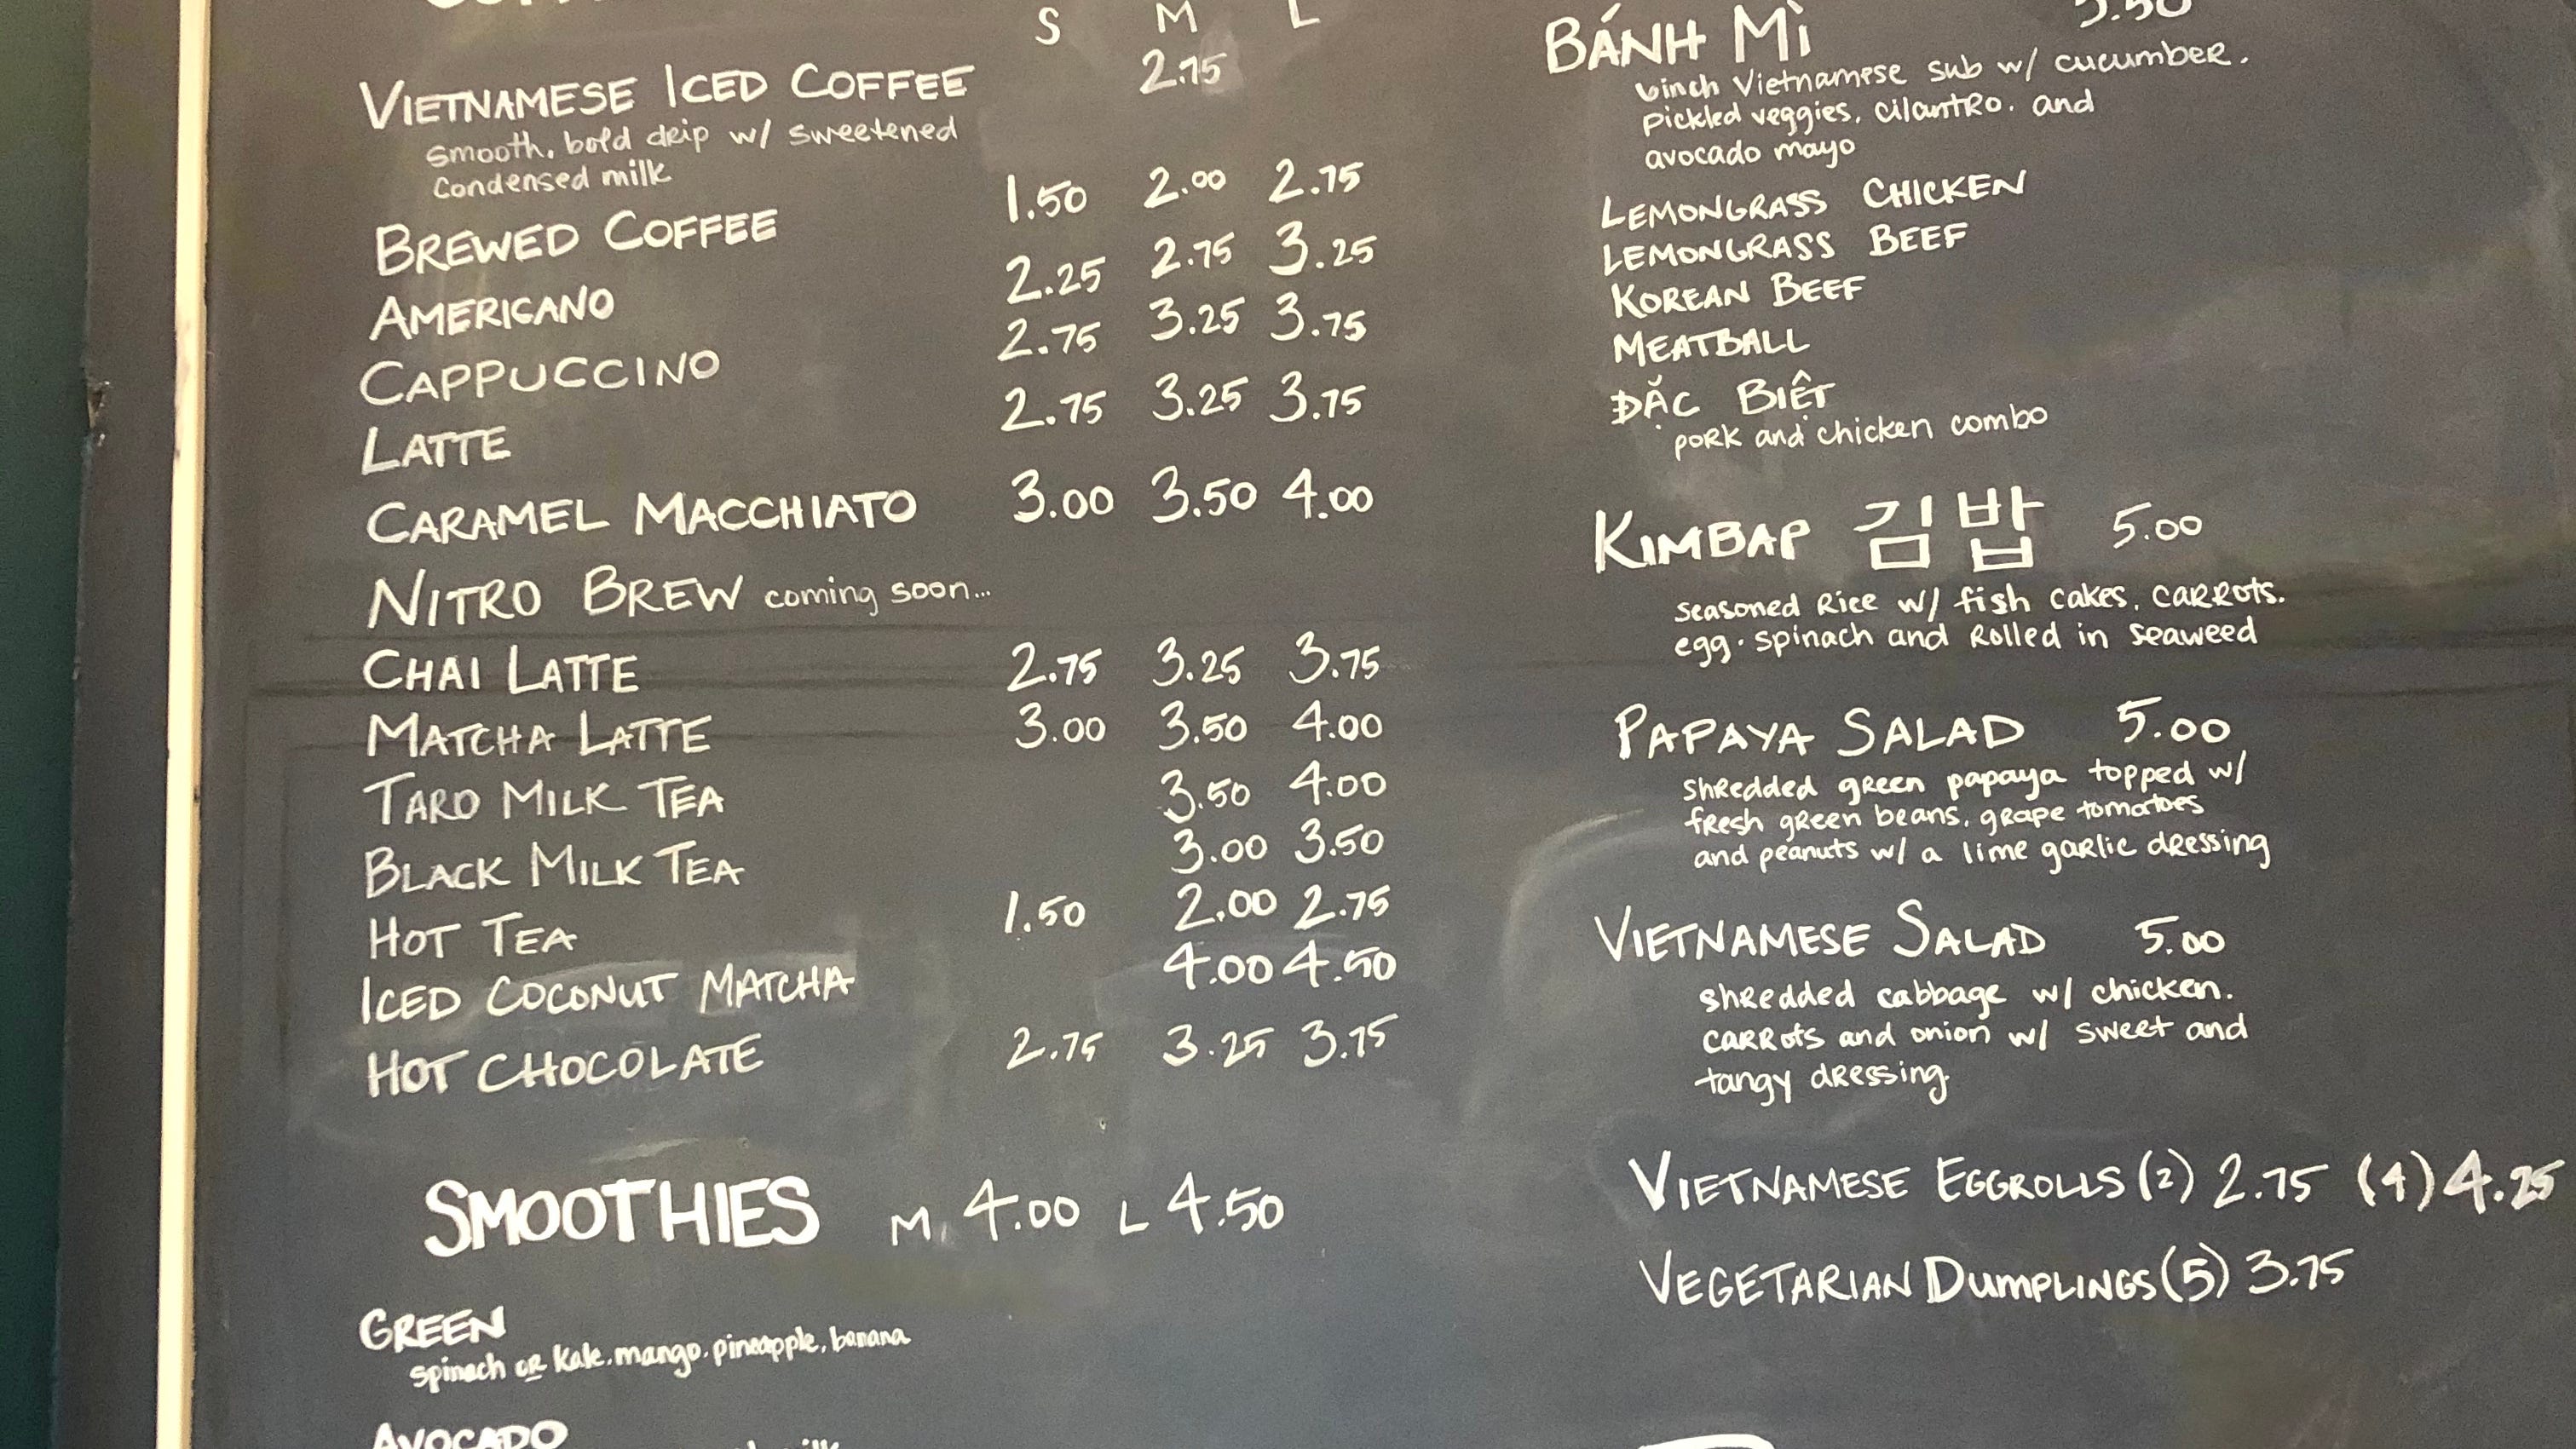 S M L
VIETNAMESE ICED COFFEE 2.75
smooth, bold drip w/ sweetened
condensed milk
BREWED COFFEE 1.50 2.00 2.75
AMERICANO 2.25 2.75 3.25
CAPPUCCINO 2.75 3.25 3.75
LATTE 2.75 3.25 3.75
CARAMEL MACCHIATO 3.00 3.50 4.00
NITRO BREW coming soon...
CHAI LATTE 2.75 3.25 3.75
MATCHA LATTE 3.00 3.50 4.00
TARO MILK TEA 3.50 4.00
BLACK MILK TEA 3.00 3.50
HOT TEA 1.50 2.00 2.75
ICED COCONUT MATCHA 4.00 4.50
HOT CHOCOLATE 2.75 3.25 3.75
SMOOTHIES M 4.00 L 4.50
GREEN
spinach OR kale, mango, pineapple, banana
AVOCADO
BÁNH MÌ
6inch Vietnamese sub w/ cucumber,
pickled veggies, cilantro, and
avocado mayo
LEMONGRASS CHICKEN
LEMONGRASS BEEF
KOREAN BEEF
MEATBALL
ĐẶC BIỆT
pork and chicken combo
KIMBAP 김밥 5.00
seasoned rice w/ fish cakes, carrots,
egg, spinach and rolled in seaweed
PAPAYA SALAD 5.00
shredded green papaya topped w/
fresh green beans, grape tomatoes
and peanuts w/ a lime garlic dressing
VIETNAMESE SALAD 5.00
shredded cabbage w/ chicken,
carrots and onion w/ sweet and
tangy dressing
VIETNAMESE EGGROLLS (2) 2.75 (4) 4.25
VEGETARIAN DUMPLINGS (5) 3.75